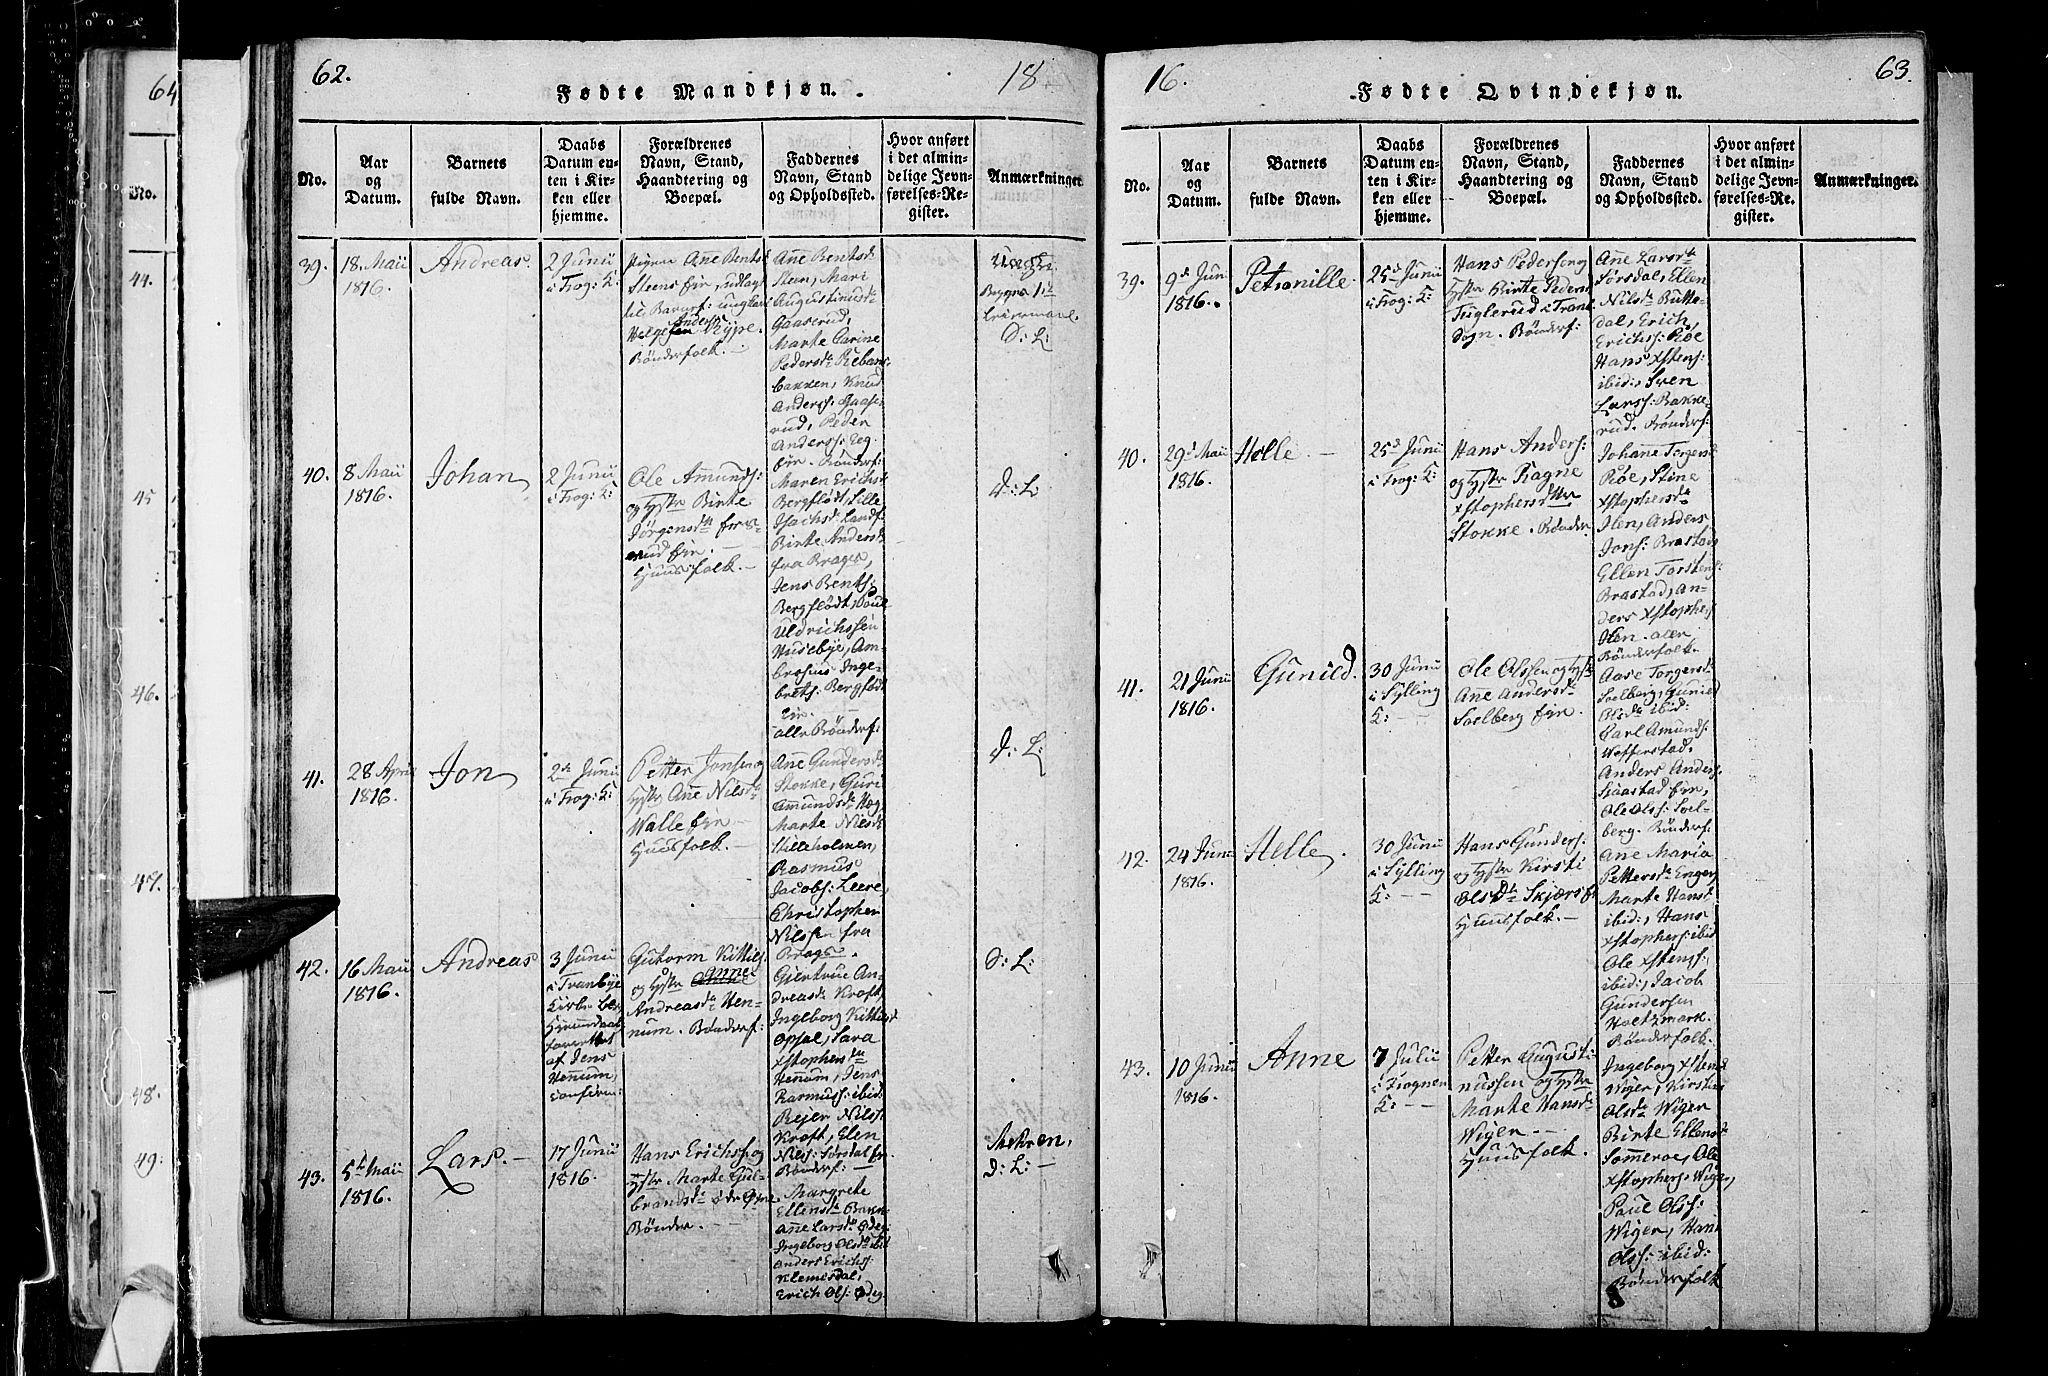 62.
Fødte Mandkjøn.
18
No.
Aar
og
Datum.
Barnets
fulde Navn.
Daabs
Datum en-
ten i Kir-
ken eller
hjemme.
Forældrenes
Navn, Stand,
Haandtering og
Boepæl.
Faddernes
Navn, Stand
og Opholdssted.
Hvor anført
i det almin-
delige Jevn-
førelses-Re-
gister.
Anmærkninger.
39.
18. Maii
1816.
Andreas.
2 Junii
i Frog: K:
Pigen Ane Bents
Steens eje, udlagt
til Barnef: ungkarl
Anders
Rype.
Bønderfolk.
Ane Bentsd
Steen, Mari
Augustinusd
Gaaserud,
Marte Carine
Pedersd Rebans
bakken, Knud
Anders: Gaase-
rud, Peder
Anderss: Teg.
eje. Bønderf:
Uægte.
1ste
Leiermaal.
D: L:
40.
8 Maii
1816.
Johan
2 Junii
i Frog: K:
Ole Amunds:
og Hstr Birte
Jørgensdtr
rud eje.
Huusfolk.
Maren Erichs
Bergflødt, Sille
Isachsd: Landf:
Birte Andersd
fra Bragen,
Jens Bents:
Bergflødt, Poul
Uldrichssen
Husebye, Am-
brosius Inge-
brets: Bergflødt
Eje.
alle Bønderf:
D: L:
41.
28 April
1816.
Jon
2de Junii
i Frog: K:
Petter Jonsen og
Hstr Ane Nilsd
Walle eje
Huusfolk.
Ane Gundersd
Stokke, Guri
Amundsd Hæg
Marte Nilsd
Stilleholmen,
Rasmus
Jacobs: Leere,
Christopher
Nilssen fra
Brags.
D: L:
42.
16 Maii
1816.
Andreas
3 Junii
i Tranbye
Kirke
af Jens
Hennum,
conferm:
Gutorm Kittils:
og Hstr Anne
Andreasd Hen-
num. Bønderf:
Giertrue An-
dreasd Kroft,
Ingeborg Kittilsd
Opsal, Sara
Xstophersdtr
Hennum, Jens
Rasmuss: ibid:
Rejer Nils:
Kroft, Elen
Nils: Sørsdal eje
Bønderf:
D: L:
43.
5te Maii
1816.
Lars.
17 Junii
1816.
Hans Erichss: og
Hstr Marte Gul-
brandsd
Bønder.
Margrete
Ellensd Bakk
Ane Larsd Ødeg:
Ingeborg Olsd ibid
Anders Erichs:
Klemesdal,
Erich Ols: Ødeg
D: L:
16.
Fødte Qvindekjøn.
63.
No.
Aar
og
Datum.
Barnets
fulde Navn.
Daabs
Datum en-
ten i Kir-
ken eller
hjemme.
Forældrenes
Navn, Stand,
Haandtering og
Boepæl.
Faddernes
Navn, Stand
og Opholdssted.
Hvor anført
i det almin-
delige Jevn-
førelses-Re-
gister.
Anmærkninger.
39.
9de Jun
1816.
Petronille
25de Junii
i Frog: K:
Hans Pedersen og
Hstr Birte Peders
Fuglerud i Tran
Sogn. Bønderf:
Ane Larsdtr
Sørsdal, Ellen
Nilsd Butte-
dal, Erich
Erichss: Røe
Hans Xstens:
ibid:, Sven
Larss: Bakke-
rud. Bønderf:
40.
29de Maii
1816.
Helle
25de Junii
i Frog: K:
Hans Anders:
og Hstr Ragne
Xstophersdtter
Stokke. Bønder
Johane Torgersd
Røe, Stine
Xstophersd
Ilen, Anders
Jons: Brastad
Ellen Torstens:
Brastad, An-
ders Xstophers
Ilen. alle
Bønderfolk.
41.
21 Junii
1816.
Gunild.
30 Junii
i Sylling
K:
Ole Olssen og Hstr
Ane Andersd
Soelberg eje.
Aase Torgersd
Soelberg, Gunild
Olsd ibid:
Carl Amunds:
Wefferstad.
Anders Anders:
Haastad eje,
Ole Ols: Soel-
berg. Bønderf:
42.
24 Junii
1816.
Helle.
30 Junii
i Sylling
K:
Hans Gunders:
og Hstr Kirsti
Olsdtr Skjærs
Huusfolk.
Ane Maria
Pettersd Enger
Marte Hansd
ibid:, Hans
Xstophers: ibid
Ole Xstens:
ibid:, Jacob
Gundersen
Holtzmark.
Bønderfolk.
43.
10 Junii
1816.
Anne
7 Julii
i Frogner
K:
Petter Augusti-
nussen og Hstr
Marte Hansd
Wiger
Huusfolk.
Ingeborg Xstensd
Wiger, Kirstine
Olsd Wiger
Birte Ellensd
Sommeroe, Ole
Xstophers: Wiger,
Paul Olss:
Wiger, Hans
Olss: ibid:
Bønderfolk
64
No.
44.
45
46.
47.
48.
49.